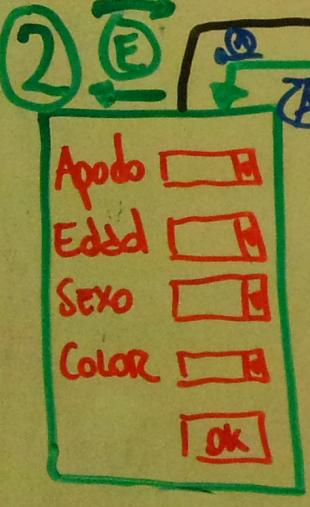 2 E
Apodo
Edad
Sexo
Color
OK